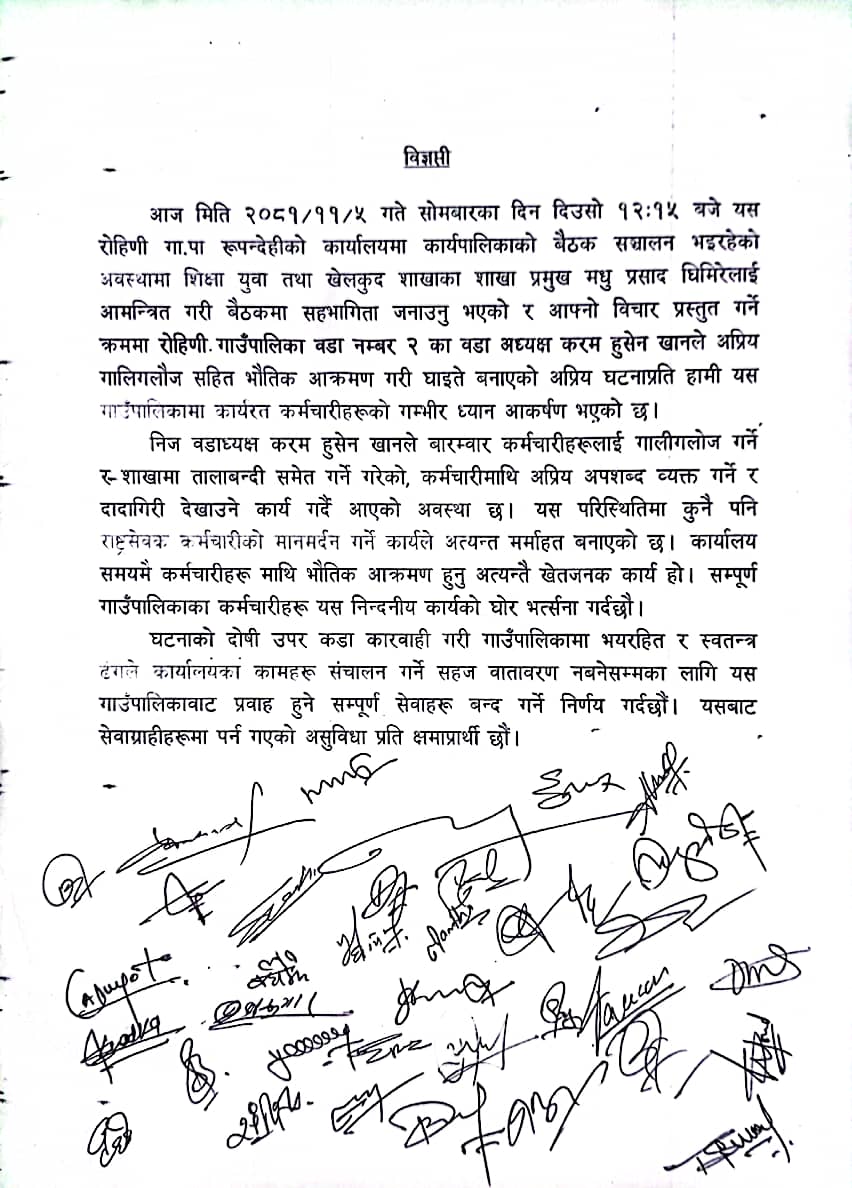 विज्ञप्ती
आज मिति २०८१/११/५ गते सोमबारका दिन दिउसो १२:१५ बजे यस
रोहिणी गा.पा रूपन्देहीको कार्यालयमा कार्यपालिकाको बैठक सञ्चालन भइरहेको
अवस्थामा शिक्षा युवा तथा खेलकुद शाखाका शाखा प्रमुख मधु प्रसाद घिमिरेलाई
आमन्त्रित गरी बैठकमा सहभागिता जनाउनु भएको र आफ्नो विचार प्रस्तुत गर्ने
क्रममा रोहिणी गाउँपालिका वडा नम्बर २ का वडा अध्यक्ष करम हुसेन खानले अप्रिय
गालिगलौज सहित भौतिक आक्रमण गरी घाइते बनाएको अप्रिय घटनाप्रति हामी यस
गाउँपालिकामा कार्यरत कर्मचारीहरूको गम्भीर ध्यान आकर्षण भएको छ।
निज वडाध्यक्ष करम हुसेन खानले बारम्वार कर्मचारीहरूलाई गालीगलोज गर्ने
र शाखामा तालाबन्दी समेत गर्ने गरेको, कर्मचारीमाथि अप्रिय अपशब्द व्यक्त गर्ने र
दादागिरी देखाउने कार्य गर्दै आएको अवस्था छ। यस परिस्थितिमा कुनै पनि
राष्ट्रसेवक कर्मचारीको मानमर्दन गर्ने कार्यले अत्यन्त मर्माहत बनाएको छ। कार्यालय
समयमै कर्मचारीहरू माथि भौतिक आक्रमण हुनु अत्यन्तै खेतजनक कार्य हो। सम्पूर्ण
गाउँपालिकाका कर्मचारीहरू यस निन्दनीय कार्यको घोर भर्त्सना गर्दछौ।
घटनाको दोषी उपर कडा कारवाही गरी गाउँपालिकामा भयरहित र स्वतन्त्र
ढंगले कार्यालयका कामहरू संचालन गर्ने सहज वातावरण नबनेसम्मका लागि यस
गाउँपालिकावाट प्रवाह हुने सम्पूर्ण सेवाहरू बन्द गर्ने निर्णय गर्दछौं। यसबाट
सेवाग्राहीहरूमा पर्न गएको असुविधा प्रति क्षमाप्रार्थी छौं।